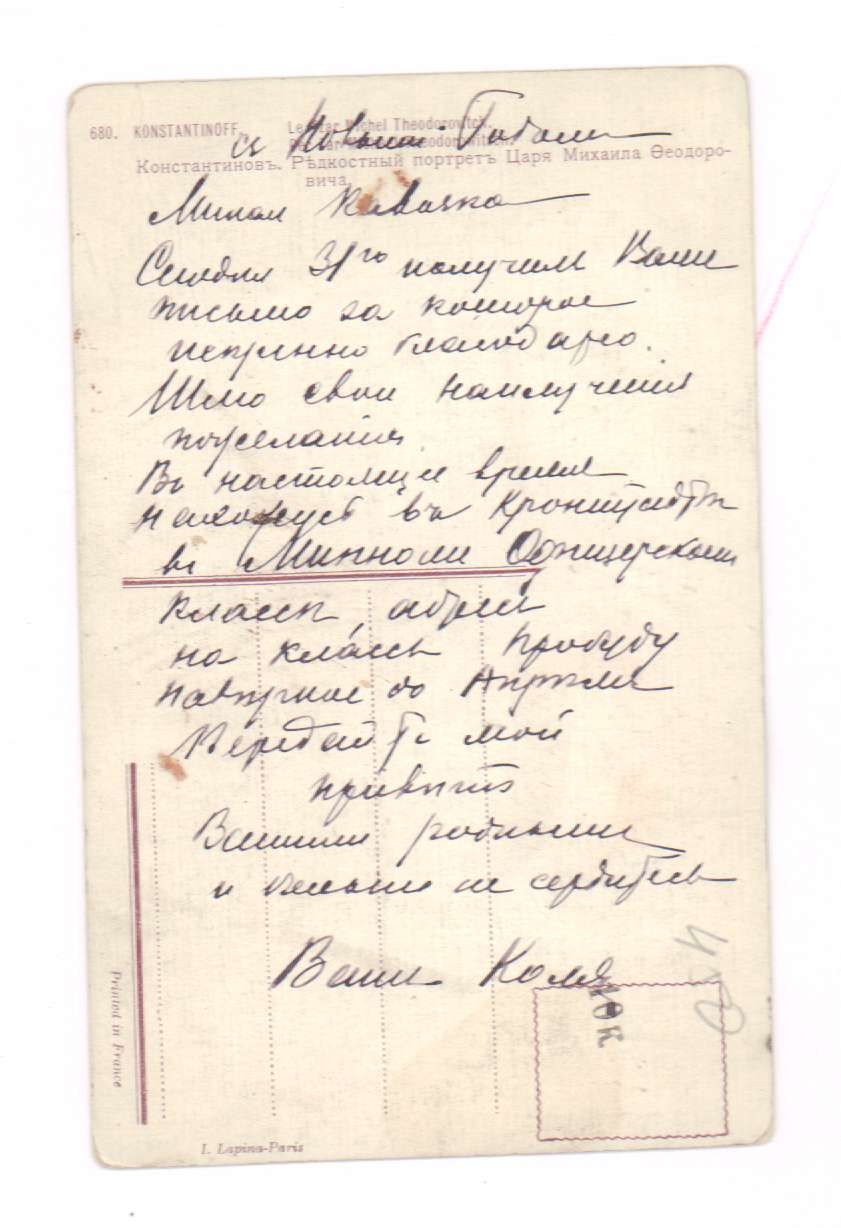 680. KONSTANTINOFF. Le Czar Michel Theodorovitch.
съ Новымъ Годомъ
Константиновъ. Рѣдкостный портретъ Царя Михаила Ѳеодоро-
вича.
Милая
Сегодня 31го получилъ Ваше
письмо за которое
искренно благодарю.
Шлю свои наилучшія
пожеланія
Въ настоящее время
нахожусь въ Кронштадтѣ
въ Минномъ Офицерскомъ
классѣ, адресъ
на классъ пробуду
навѣрное до Апрѣля
Передайте мой
привѣтъ
Вашимъ роднымъ
и больше не сердитесь
Вашъ Коля
40к
Printed in France
I. Lapina-Paris